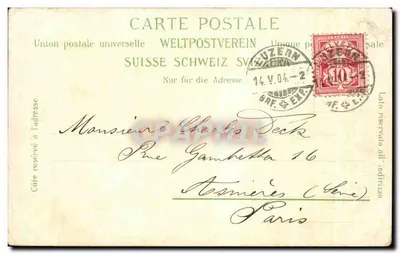 CARTE POSTALE
Union postale universelle WELTPOSTVEREIN Unione postale
SUISSE SCHWEIZ
Nur für die Adresse
LUZERN
14.V.04.-2
BRF. EXP.
LUZERN
10
BRF. EXP.
Côté réservé à l'adresse
Lato riservato all' indirizzo
Monsieur Charles Deck
Rue Gambetta 16
Asnières (Seine)
Paris